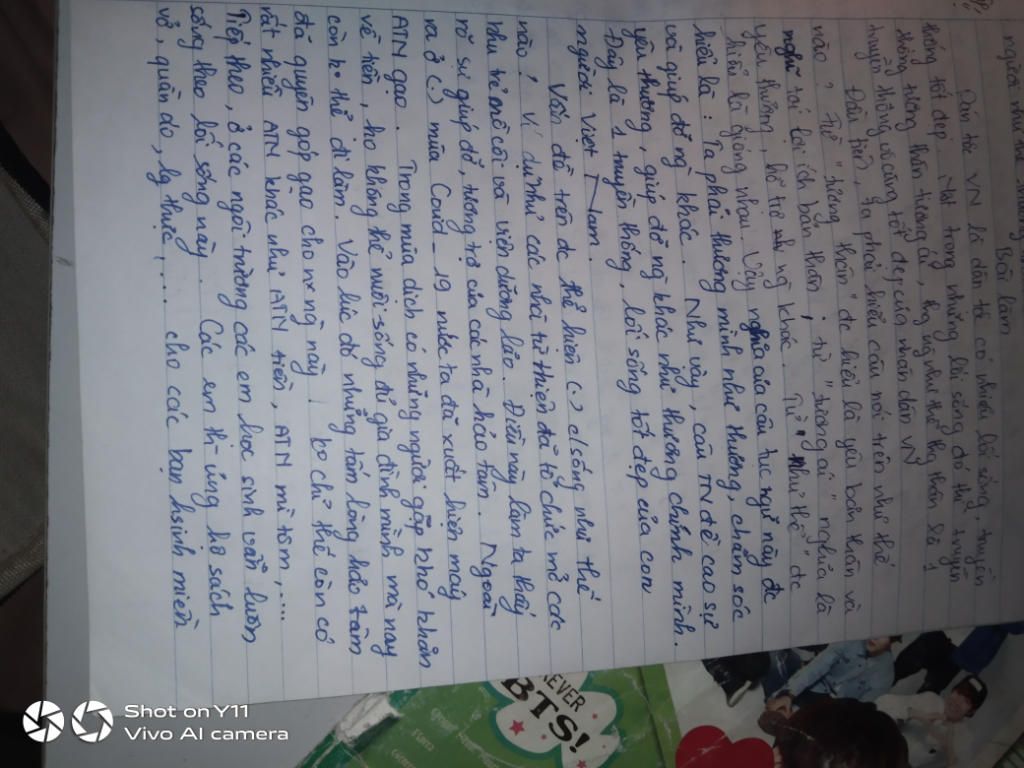 người như thể thương
Bài làm
Dân tộc VN là dân tộc có nhiều lối sống, truyền
thống tốt đẹp. Một trong những lối sống đó thì truyền
thống tương thân tương ái,
truyền thống vô cùng tốt đẹp của nhân dân VN
Đầu tiên, ta phải hiểu câu nói trên như thế
nào? Từ "tương thân" đc hiểu là yêu bản thân và
nghĩ tới lợi ích bản thân; từ "tương ái" nghĩa là
yêu thương, hỗ trợ ng khác. Từ "như thể" đc
hiểu là giống nhau. Vậy nghĩa của câu tục ngữ này đc
hiểu là: Ta phải thương mình như thương, chăm sóc
và giúp đỡ ng khác. Như vậy, câu TN đề cao sự
yêu thương, giúp đỡ ng khác như thương chính mình.
Đây là 1 truyền thống, lối sống tốt đẹp của con
người Việt Nam.
Vấn đề trên đc thể hiện (.) c/sống như thế
nào? Ví dụ như các nhà từ thiện đã tổ chức mở các
khu trẻ mồ côi và viện dưỡng lão. Điều này làm ta thấy
rõ sự giúp đỡ, tương trợ của các nhà hảo tâm. Ngoài
ra ở (.) mùa Covid-19 nước ta đã xuất hiện máy
ATN gạo. Trong mùa dịch có những người gặp khó khăn
về tiền, họ không thể nuôi sống đc gia đình mình mà nay
còn k thể đi làm. Vào lúc đó những tấm lòng hảo tâm
đã quyên góp gạo cho n~ ng này. k chỉ thế còn có
rất nhiều ATN khác như ATN tiền, ATN mì tôm,....
Tiếp theo, ở các ngôi trường các em học sinh vẫn luôn
sống theo lối sống này. Các em thì ủng hộ sách
vở, quần áo, lg thực,.... cho các bạn hsinh miền
FOREVER
BTS!
Shot on Y11
Vivo AI camera